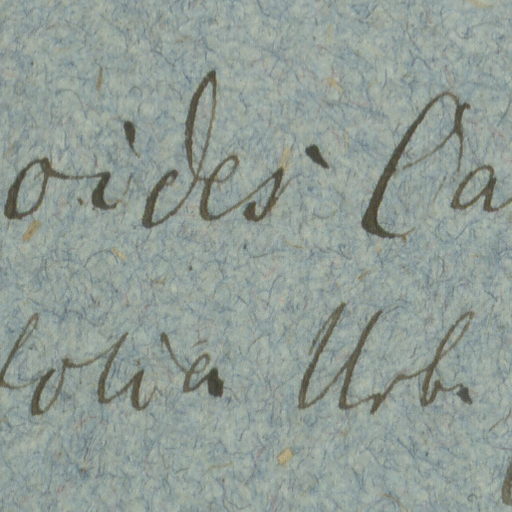 oides Ca
lolia Urb.